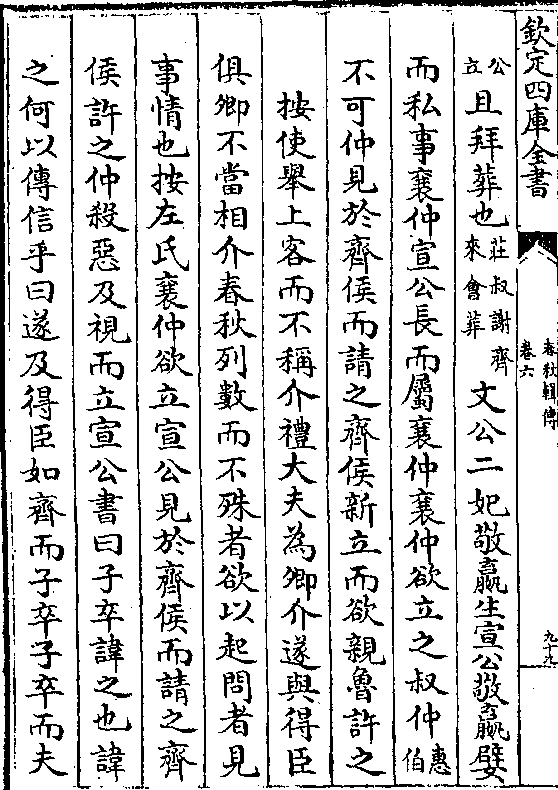 欽定四庫全書
春秋輯傳
卷六
九十九
公立且拜葬也莊叔謝齊來會葬文公二妃敬嬴生宣公敬嬴嬖
而私事襄仲宣公長而屬襄仲襄仲欲立之叔仲惠伯
不可仲見於齊侯而請之齊侯新立而欲親魯許之
按使舉上客而不稱介禮大夫為卿介遂與得臣
俱卿不當相介春秋列數而不殊者欲以起問者見
事情也按左氏襄仲欲立宣公見於齊侯而請之齊
侯許之仲殺惡及視而立宣公書曰子卒諱之也諱
之何以傳信乎曰遂及得臣如齊而子卒子卒而夫